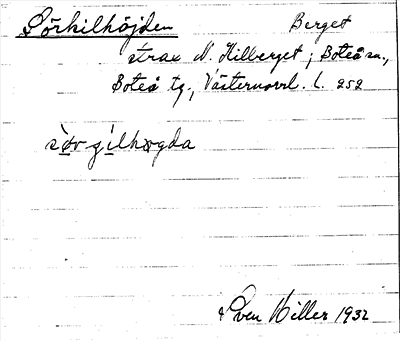 Sörhilhöjden Berget
strax N. Hilberget, Boteå sn.,
Boteå tg., Västernorrl. L. 252
Sven Hiller 1932